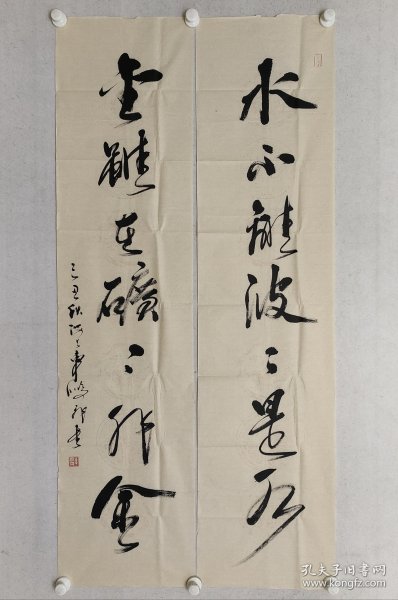 水不離波々是水
金雖在礦々非金
己丑秋
孔夫子旧书网
www.kongfz.com